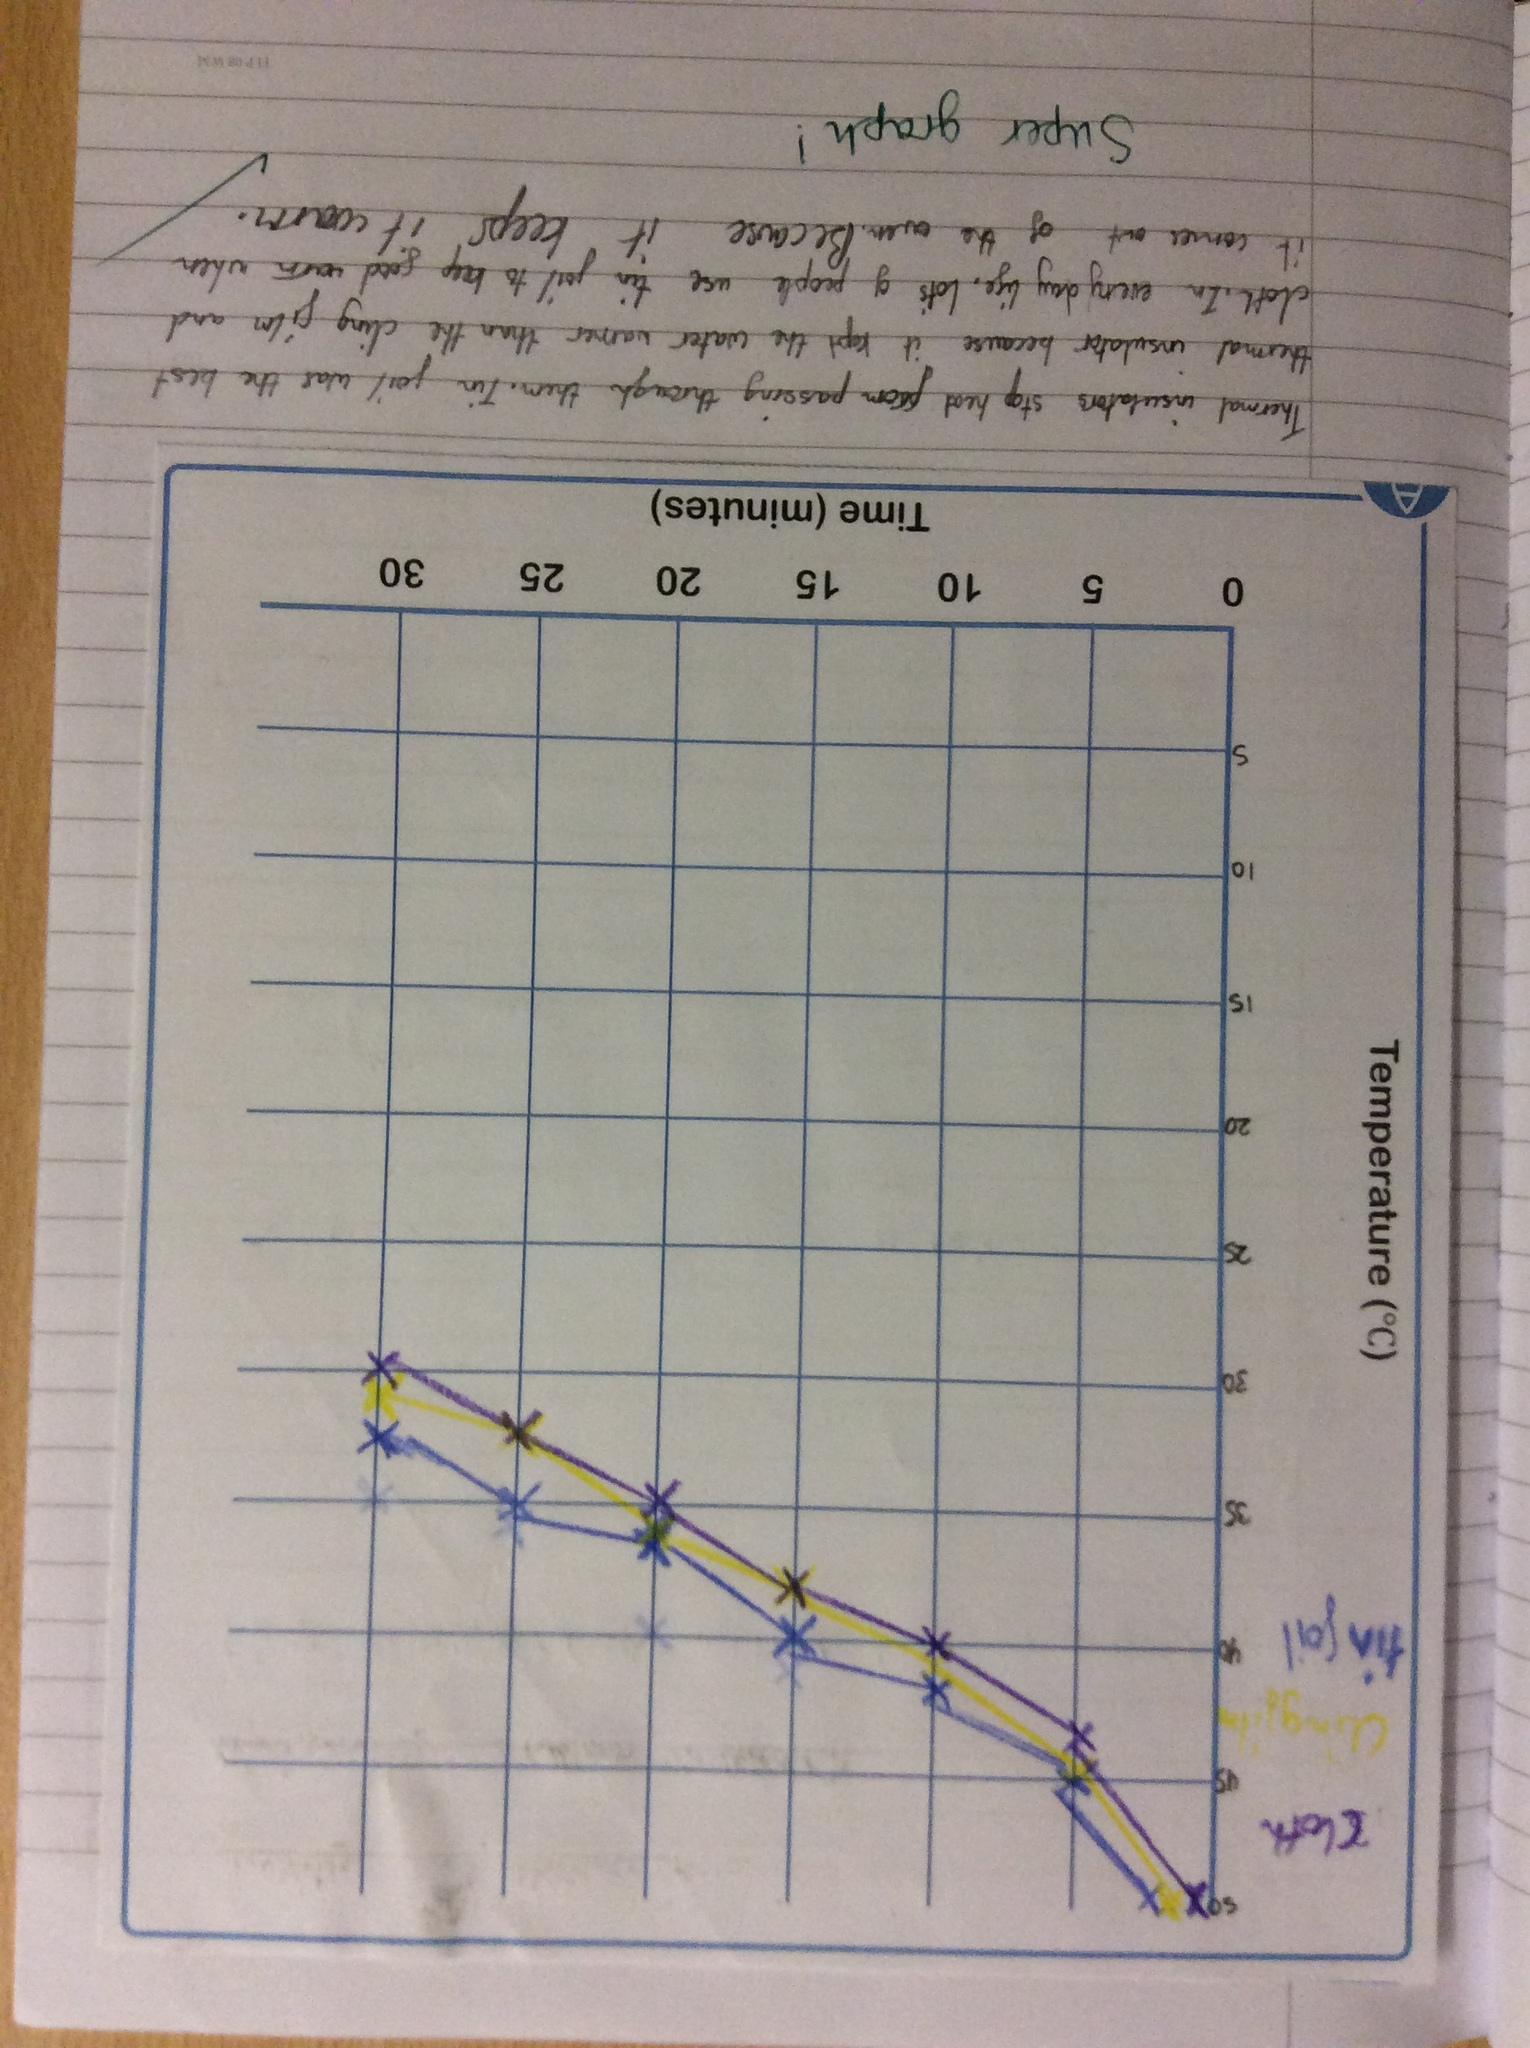 Temperature (°C)
50
45
40
35
30
25
20
15
10
5
Cloth
Clingfilm
tin foil
0 5 10 15 20 25 30
Time (minutes)
A
Thermal insulators stop heat from passing through them. Tin foil was the best
thermal insulator because it kept the water warmer than the cling film and
cloth. In every day life, lots of people use tin foil to keep food warm when
it comes out of the oven. Because it keeps it warm.
Super graph!